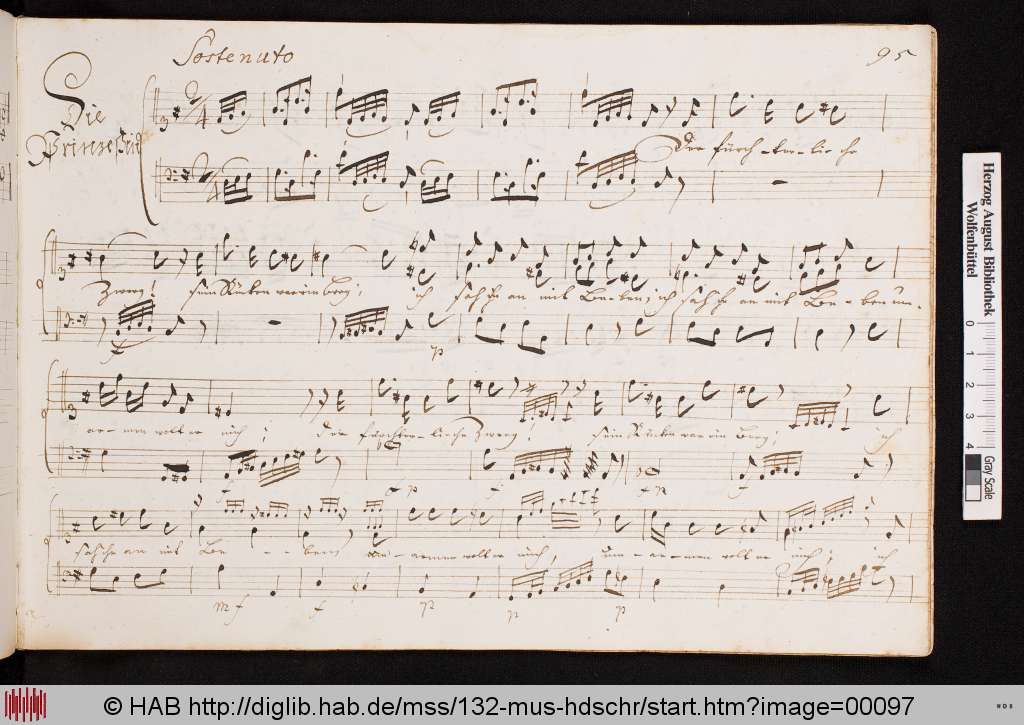 Sostenuto
95
Die
Prinzeßin
2/4
Der fürch-ter-li-che
Zwerg! sein Rücken war ein Berg;
ich sah ihn an mit Be-ben; ich sah ihn an mit Be-ben
p
ar-men wollt er mich;
der fürchterliche Zwerg! sein Rücken war ein Berg; ich
f
p
f
sah ihn an mit Be-ben um-armen wollt er mich, um-ar-men wollt er mich; ich
mf
f
p
p
p
Herzog August Bibliothek
Wolfenbüttel
0 1 2 3 4
Gray Scale
© HAB http://diglib.hab.de/mss/132-mus-hdschr/start.htm?image=00097